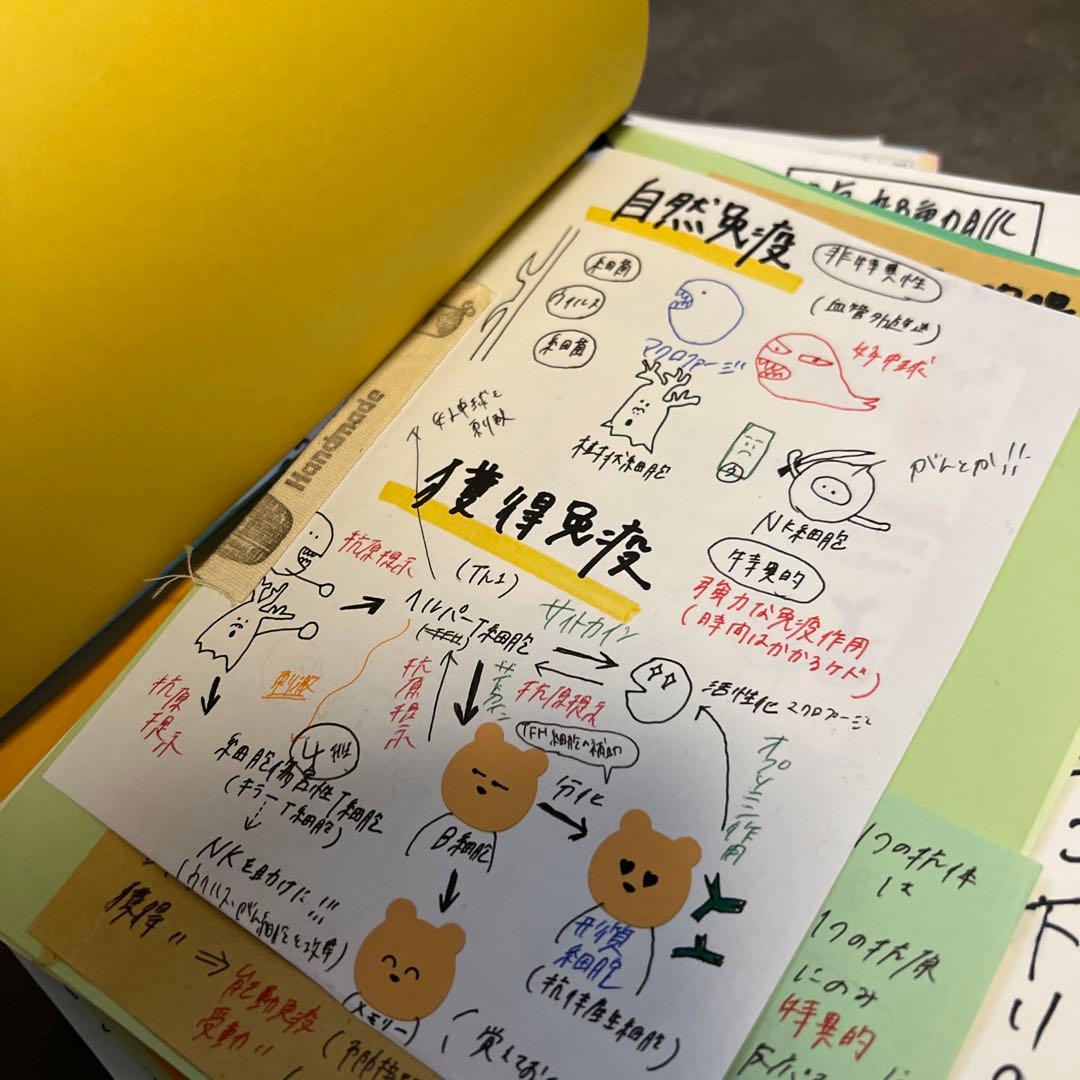 自然免疫
非特異性
細菌
ウイルス
細菌
マクロファージ
好中球
樹状細胞
NK細胞
がんとか!!
好中球を
刺激
Handmade
獲得免疫
特異的
強力な免疫作用
(時間はかかるケド)
抗原提示
(Th1)
ヘルパーT細胞
サイトカイン
抗原提示
活性化マクロファージ
抗原
提示
刺激
抗原提示
サイトカイン
TFH細胞の補助
分化
オプソニン作用
細胞傷害性T細胞
(キラーT細胞)
B細胞
NKを助けに!!!
形質
細胞
(抗体産生細胞)
(メモリー)
獲得〃
⇒
能動免疫
受動〃
(覚えてお
1つの抗体
は
1つの抗原
にのみ
特異的